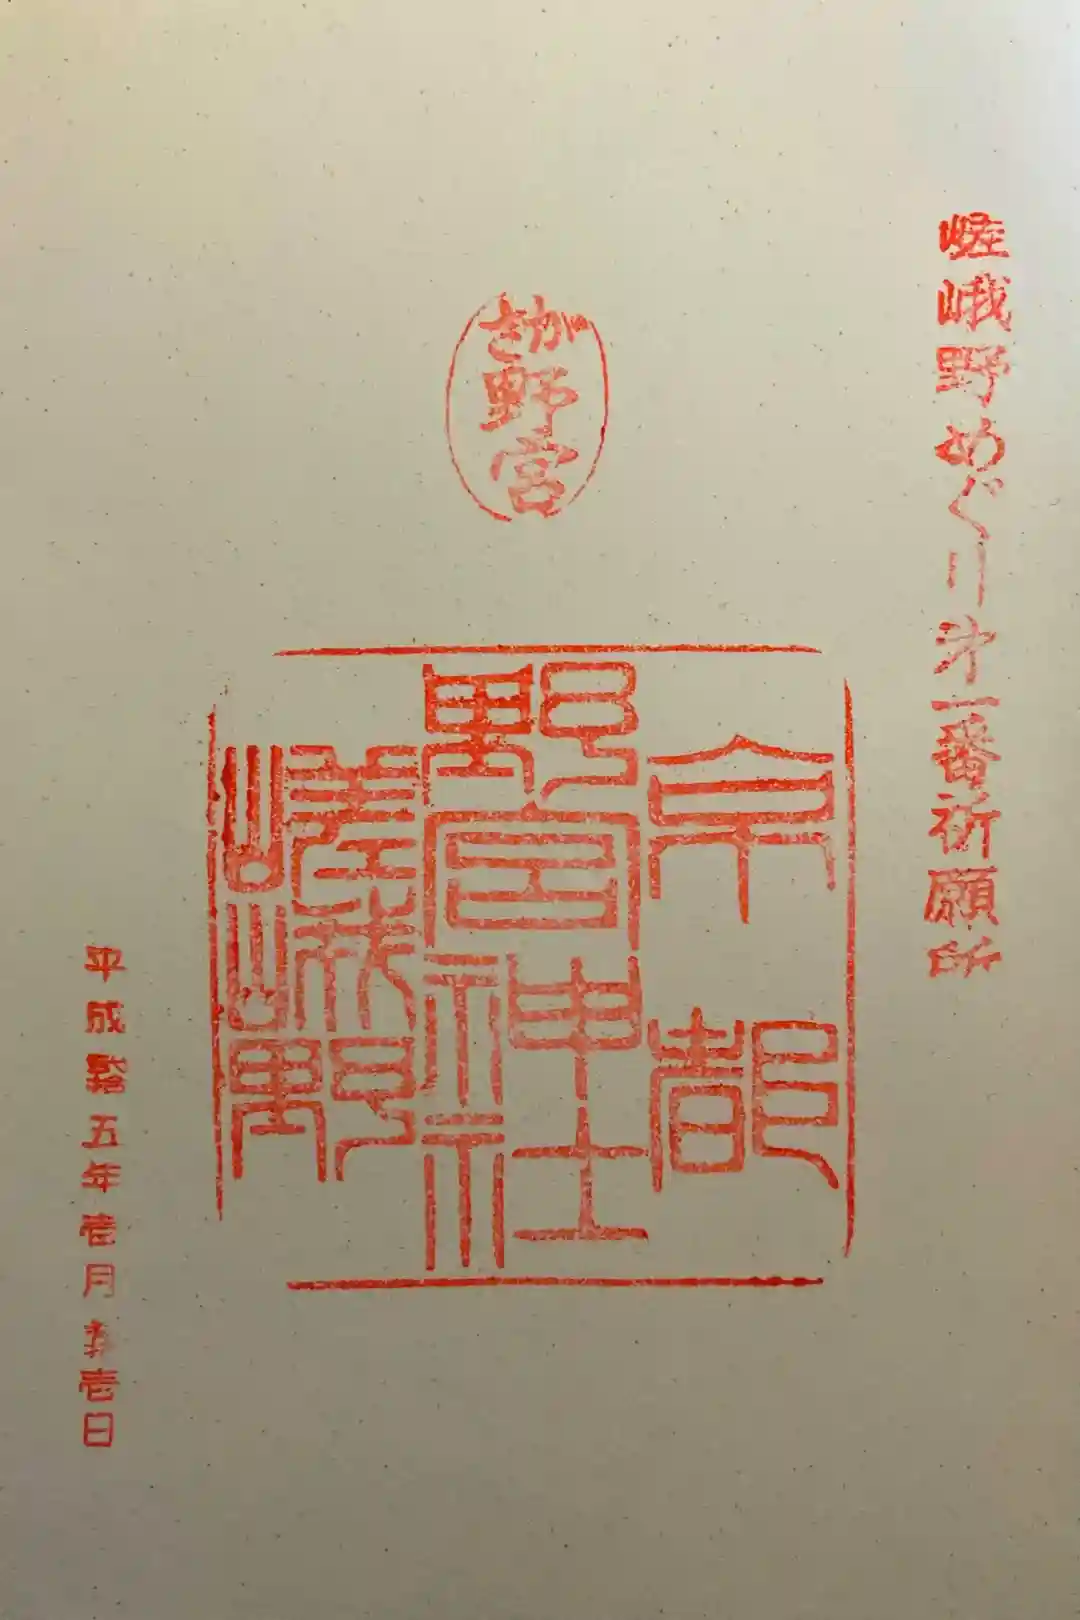 嵯峨野めぐり第一番祈願所
さが
野宮
京都
野宮神社
嵯峨野
平成 五年壱月 壱日